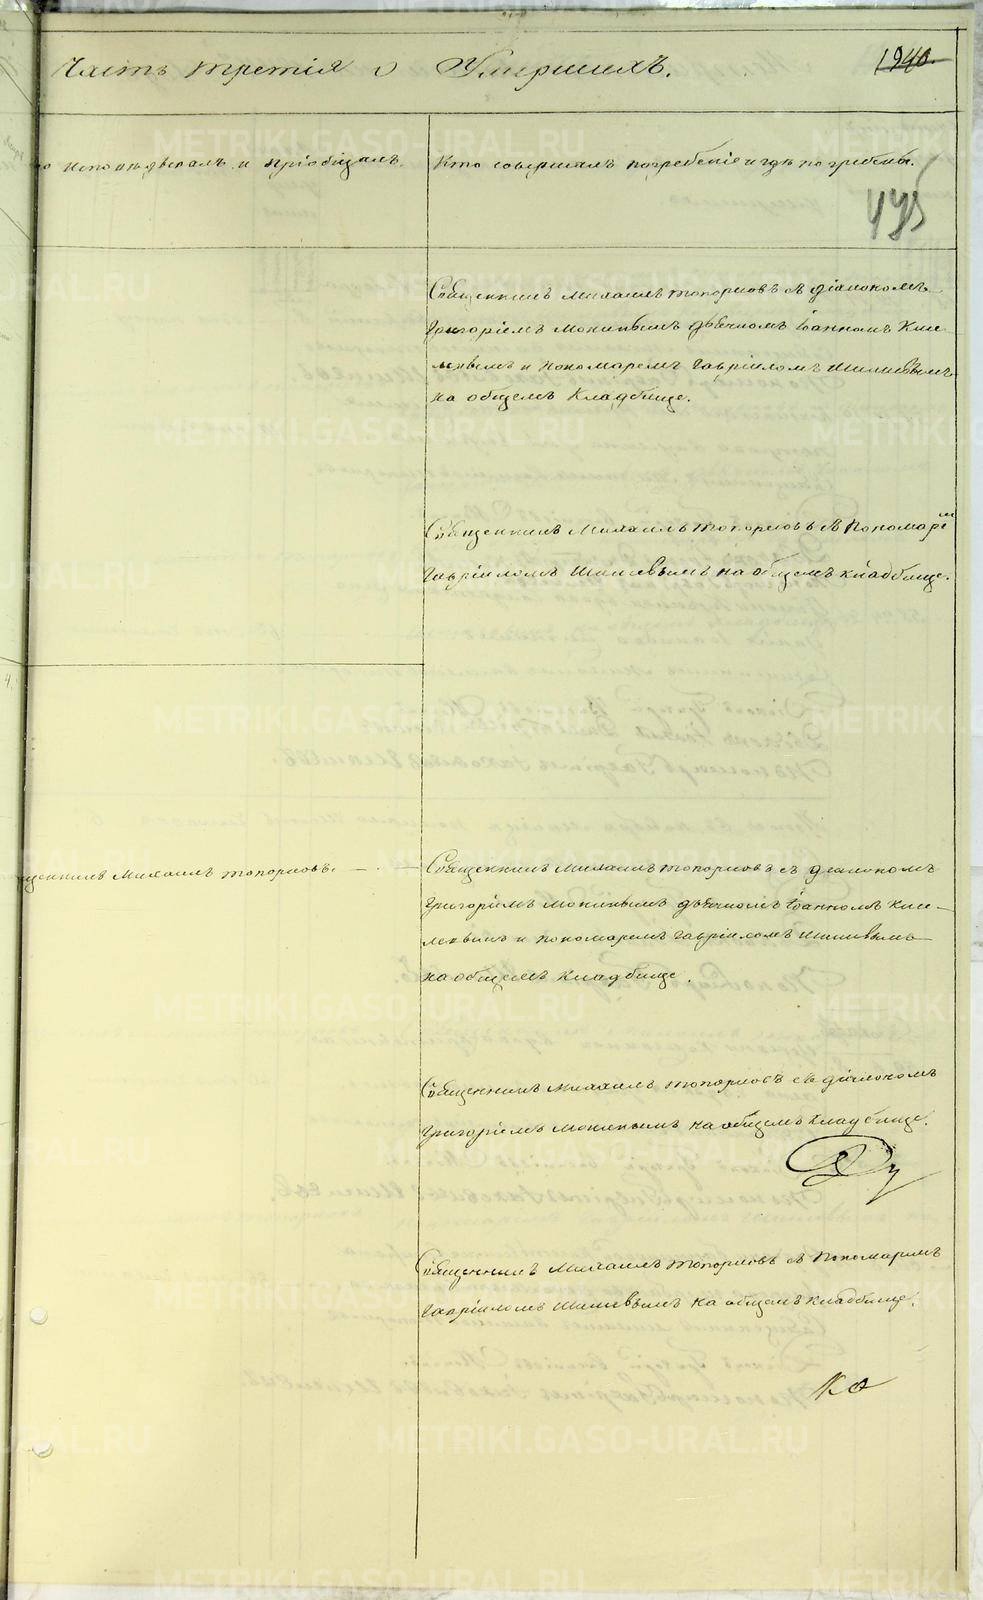 Часть третія о Умершихъ.
1940.
исповѣдвалъ и пріобщалъ.
Кто совершалъ погребеніе и гдѣ погребены.
475
Священникъ Михаилъ Топорковъ съ діакономъ
Григоріемъ дьячкомъ Іоанномъ Кисе-
левымъ и пономаремъ Гавріиломъ Шишевымъ
на общемъ кладбище.
Священникъ Михаилъ Топорковъ съ Пономаремъ
Гавріиломъ Шишевымъ на общемъ кладбище.
Священникъ Михаилъ Топорковъ. —
Священникъ Михаилъ Топорковъ съ діакономъ
Григоріемъ дьячкомъ Іоанномъ Кисе-
левымъ и пономаремъ Гавріиломъ Шишевымъ
на общемъ кладбище.
Священникъ Михаилъ Топорковъ съ діакономъ
Григоріемъ на общемъ кладбище.
Священникъ Михаилъ Топорковъ съ Пономаремъ
Гавріиломъ Шишевымъ на общемъ кладбище.
METRIKI.GASO-URAL.RU